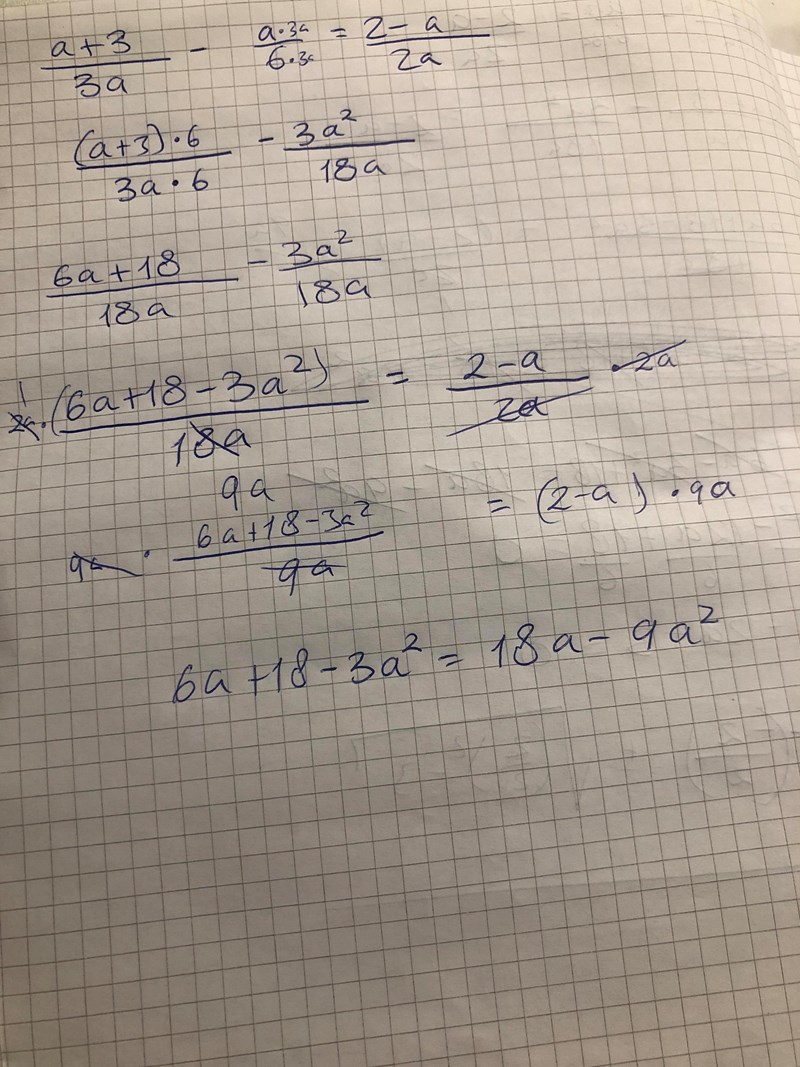 (a+3)/(3a) - (a·3a)/(6·3a) = (2-a)/(2a)
((a+3)·6)/(3a·6) - (3a²)/(18a)
(6a+18)/(18a) - (3a²)/(18a)
1
2a·(6a+18-3a²)/(18a) = (2-a)/(2a) · 2a
9a
9a · (6a+18-3a²)/(9a) = (2-a)·9a
6a+18-3a² = 18a-9a²